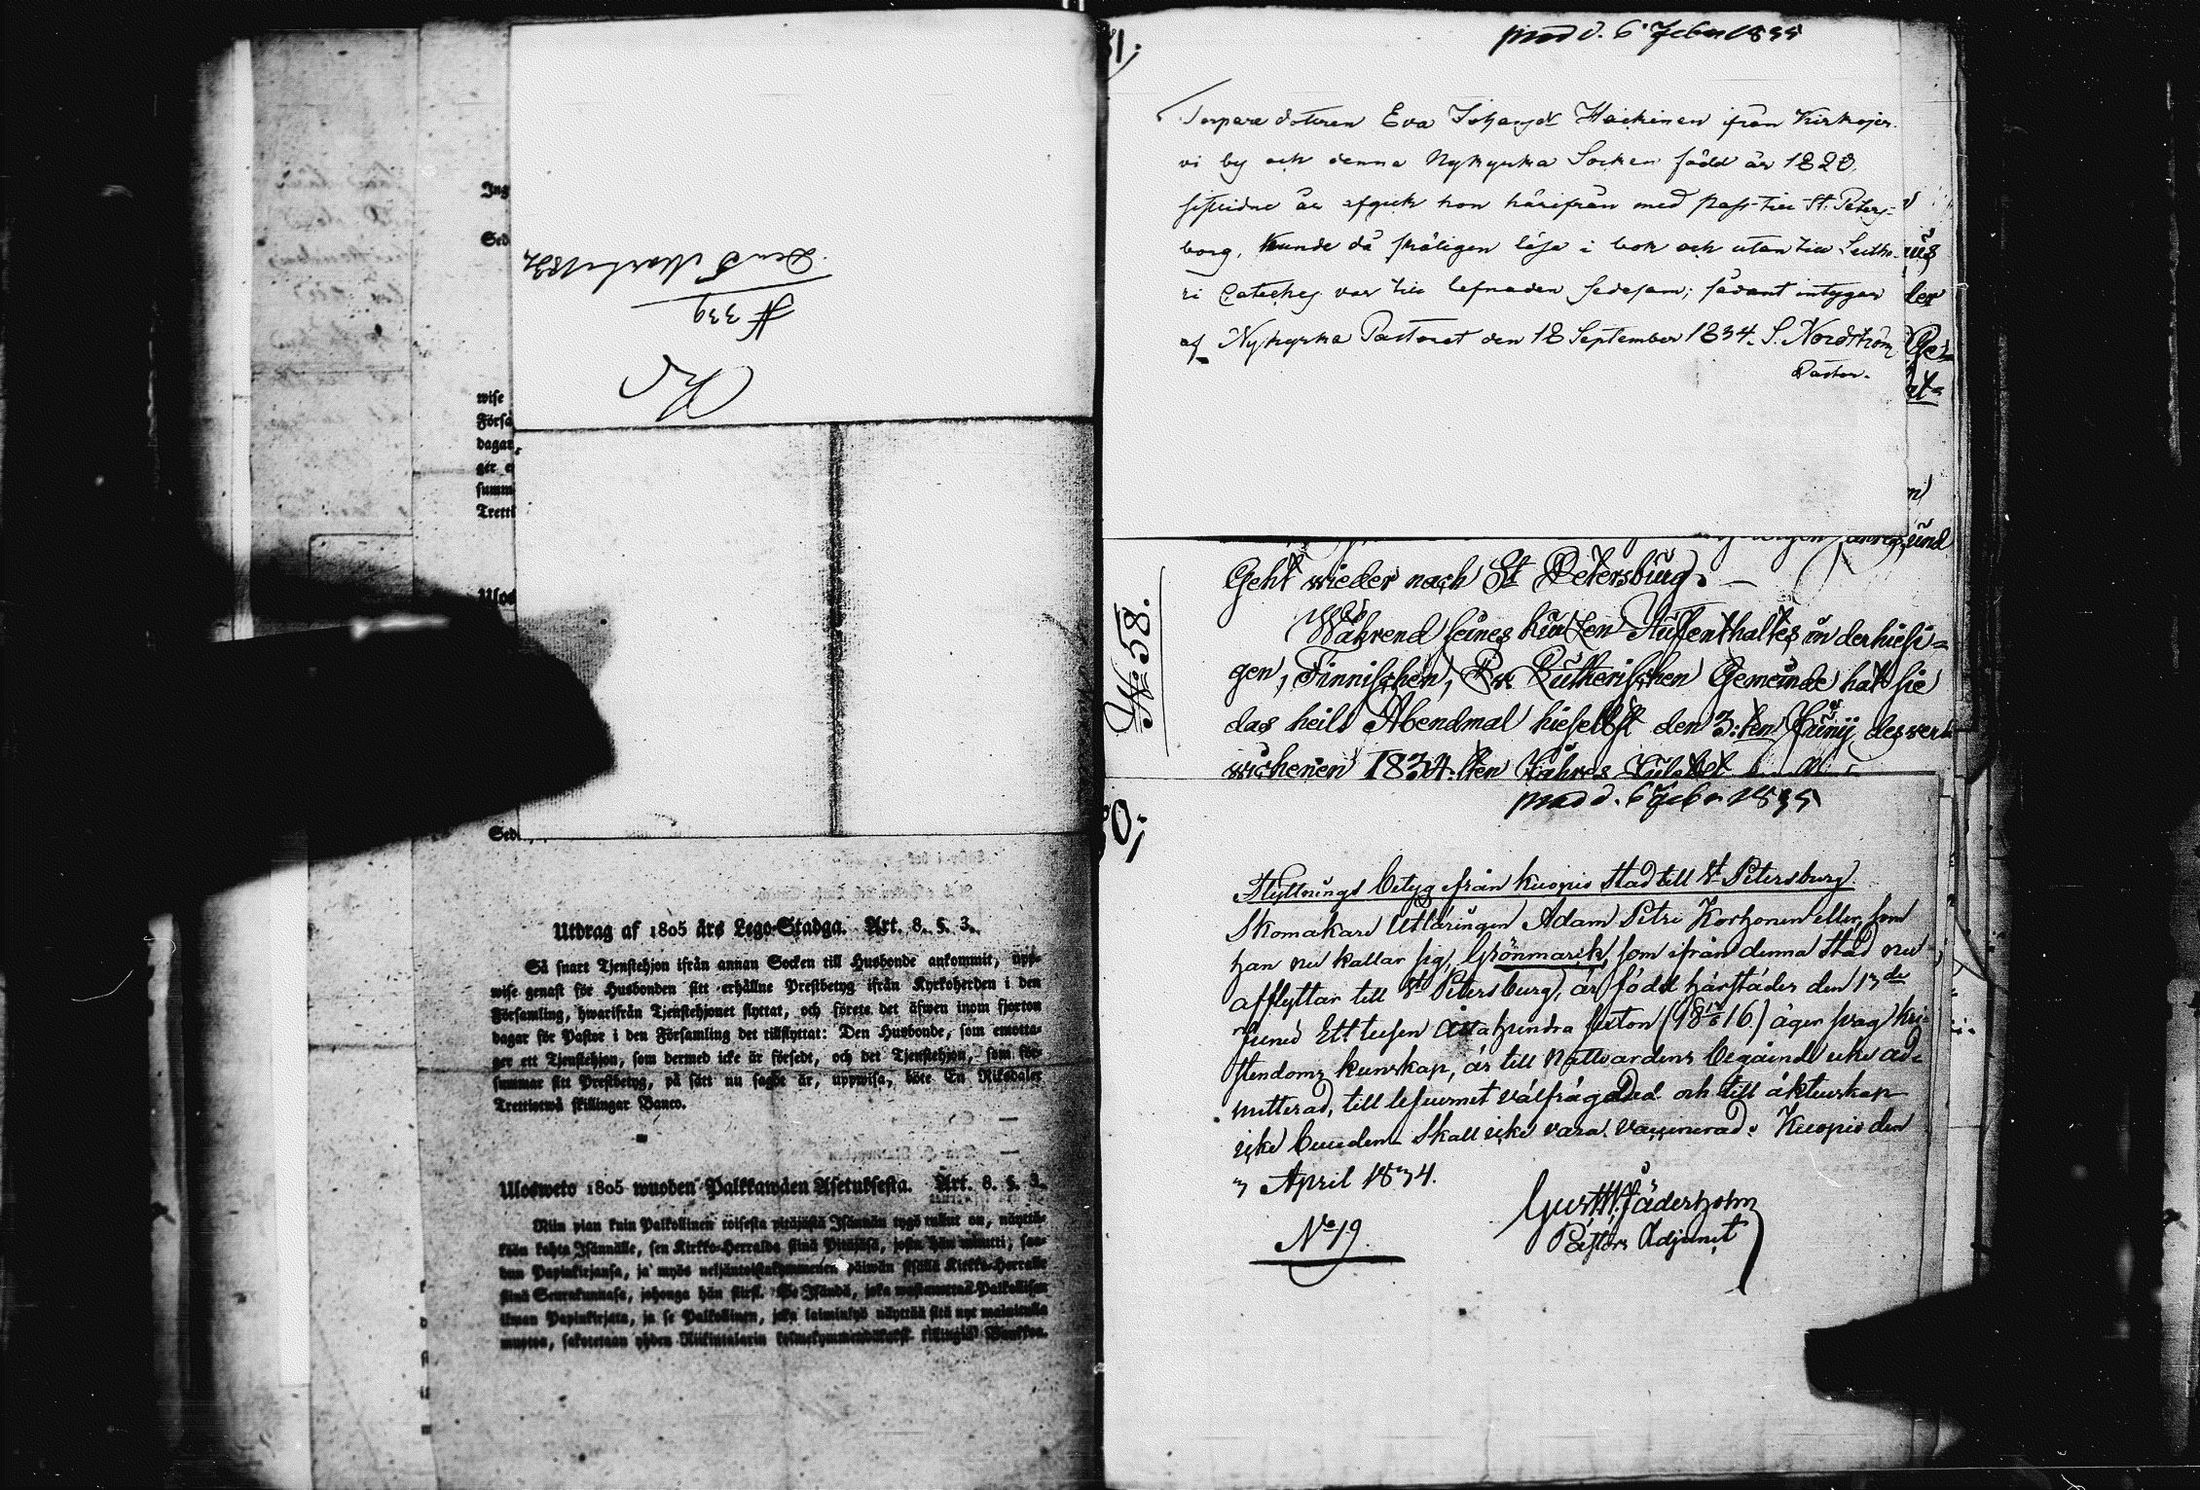 Ing
Sed
wise
Förså
dagar
ger e
summ
Tretti
Ulos
Sed
Den 5 Martii 1832
# 339
Utdrag af 1805 års Lego-Stadga. Art. 8. §. 3.
Så snart Tjenstehjon ifrån annan Socken till Husbonde ankommit, upp-
wise genast för Husbonden sitt erhållne Prestbetyg ifrån Kyrkoherden i den
Församling, hwarifrån Tjenstehjonet flyttat, och förete det äfwen inom fjorton
dagar för Pastor i den Församling det tillflyttat: Den Husbonde, som emotta-
ger ett Tjenstehjon, som dermed icke är försedt, och det Tjenstehjon, som för-
summar sitt Prestbetyg, på sätt nu sagdt är, uppwisa, böte En Riksdaler
Trettiotwå skillingar Banco.
Ulosweto 1805 wuoden Palkkawäen Asetuksesta. Art. 8. §. 3.
Niin pian kuin Palkollinen toisesta pitäjästä Isännän tygö tullut on, näyttä-
kään kohta Isännälle, sen Kirkko-Herralda siinä Pitäjäsä, josta hän muutti, saa-
dun Papinkirjansa, ja myös neljäntoistakymmenen päiwän sisällä Kirkko-Herralle
siinä Seurakunnasa, johonga hän siirsi. Se Isändä, joka wastaanottaa Palkollisen
ilman Papinkirjata, ja se Palkollinen, joka laiminlyö näyttää sitä nyt mainitulla
muotoa, sakotetaan yhden Riikintalarin kolmekymmendäkaksi killingiä Bankkoa.
31;
prod d. 6 Febr 1835
Torpare dotren Eva Johansdr Haikinen ifrån Kirkojer-
vi by och denna Nykyrka Socken född år 1820,
sistlidne år afgick hon härifrån med pass till St. Peters-
borg, kunde då försvarligen läsa i bok och utan till Luthe-
ri Cateches var till lefnaden sedesam; sådant intygar
af Nykyrka Pastorat den 18 September 1834. S. Nordström
Pastor.
Geht wieder nach St Petersburg.
Während seines kurzen Auffenthaltes in der hiesi-
gen, Finnischen, Ev. Lutherischen Gemeinde hat sie
das heil. Abendmal hieselbst den 3:ten Junij des ver-
wichenen 1834.sten Jahres
№ 58.
30;
prod d. 6 Febr 1835
Flyttnings betyg från Kuopio stad till St Petersburg
Skomakare Utläringen Adam Petri Korhonen eller, som
han nu kallar sig, Grönmarck, som ifrån denna stad nu
afflyttar till St Petersburg, är född härstädes den 17de
Juni Ett tusen åtta hundra sexton (18 17/6 16.) äger svag kri-
stendoms kunskap, är till Nattvardens begående icke ad-
mitterad, till lefvernet välfrägdad och till äktenskap
icke bunden. Skall icke vara vaccinerad. Kuopio den
3 April 1834.
Gust. W. Fäderholm
Pastors Adjunct
No 19.